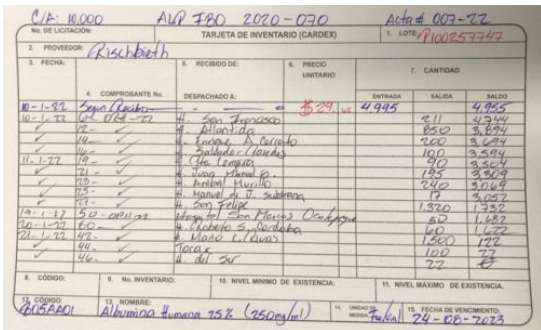 C/A: 10.000 ALP IBO 2020-070 Acta # 007-22
No. DE LICITACIÓN: TARJETA DE INVENTARIO (CARDEX) 1. LOTE: P100257747
2. PROVEEDOR: Rischbieth
3. FECHA: 5. RECIBIDO DE: 6. PRECIO UNITARIO 7. CANTIDAD
4. COMPROBANTE No. DESPACHADO A: ENTRADA SALIDA SALDO
10-1-22 Segun Recibo $29. 4,995 4,955
10-1-22 H. San Francisco 211 4,744
✓ 12- ✓ H. Atlantida 850 3,894
✓ 14- ✓ H. Enrique A. Cerrato 200 3,694
✓ 16- ✓ H. Salvador Paredes 100 3,594
11-1-22 19- ✓ Lempira 90 3,504
✓ 21- ✓ H. Juan Manuel G. 195 3,309
✓ 23- ✓ H. Anibal Murillo 240 3,069
✓ 25- ✓ H. Manuel de J. Subirana 17 3,052
✓ 27- ✓ H. San Felipe 1,320 1,732
19-1-22 50- Hospital San Marcos Ocotepeque 50 1,682
20-1-22 60- ✓ H. Roberto S. Cordoba 60 1,622
21-1-22 42- ✓ H. Mario C. Rivas 1,500 122
✓ 44- ✓ Torax 100 22
✓ 46- ✓ H. del Sur 22
8. CÓDIGO: 9. No. INVENTARIO: 10. NIVEL MINIMO DE EXISTENCIA: 11. NIVEL MÁXIMO DE EXISTENCIA:
12. CÓDIGO: B05AA01 13. NOMBRE: Albumina Humana 25% (250mg/ml) 14. UNIDAD DE MEDIDA 15. FECHA DE VENCIMIENTO: 24-08-2023